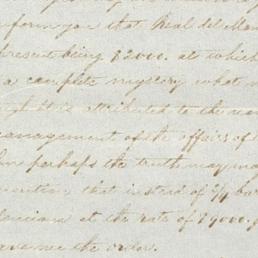 inform you that Real del Mon
present being $2000. at which
a complete mystery what
is attributed to the
management of the affairs of
perhaps the truth may
mention that instead of
at the rate of $9000.
the order.